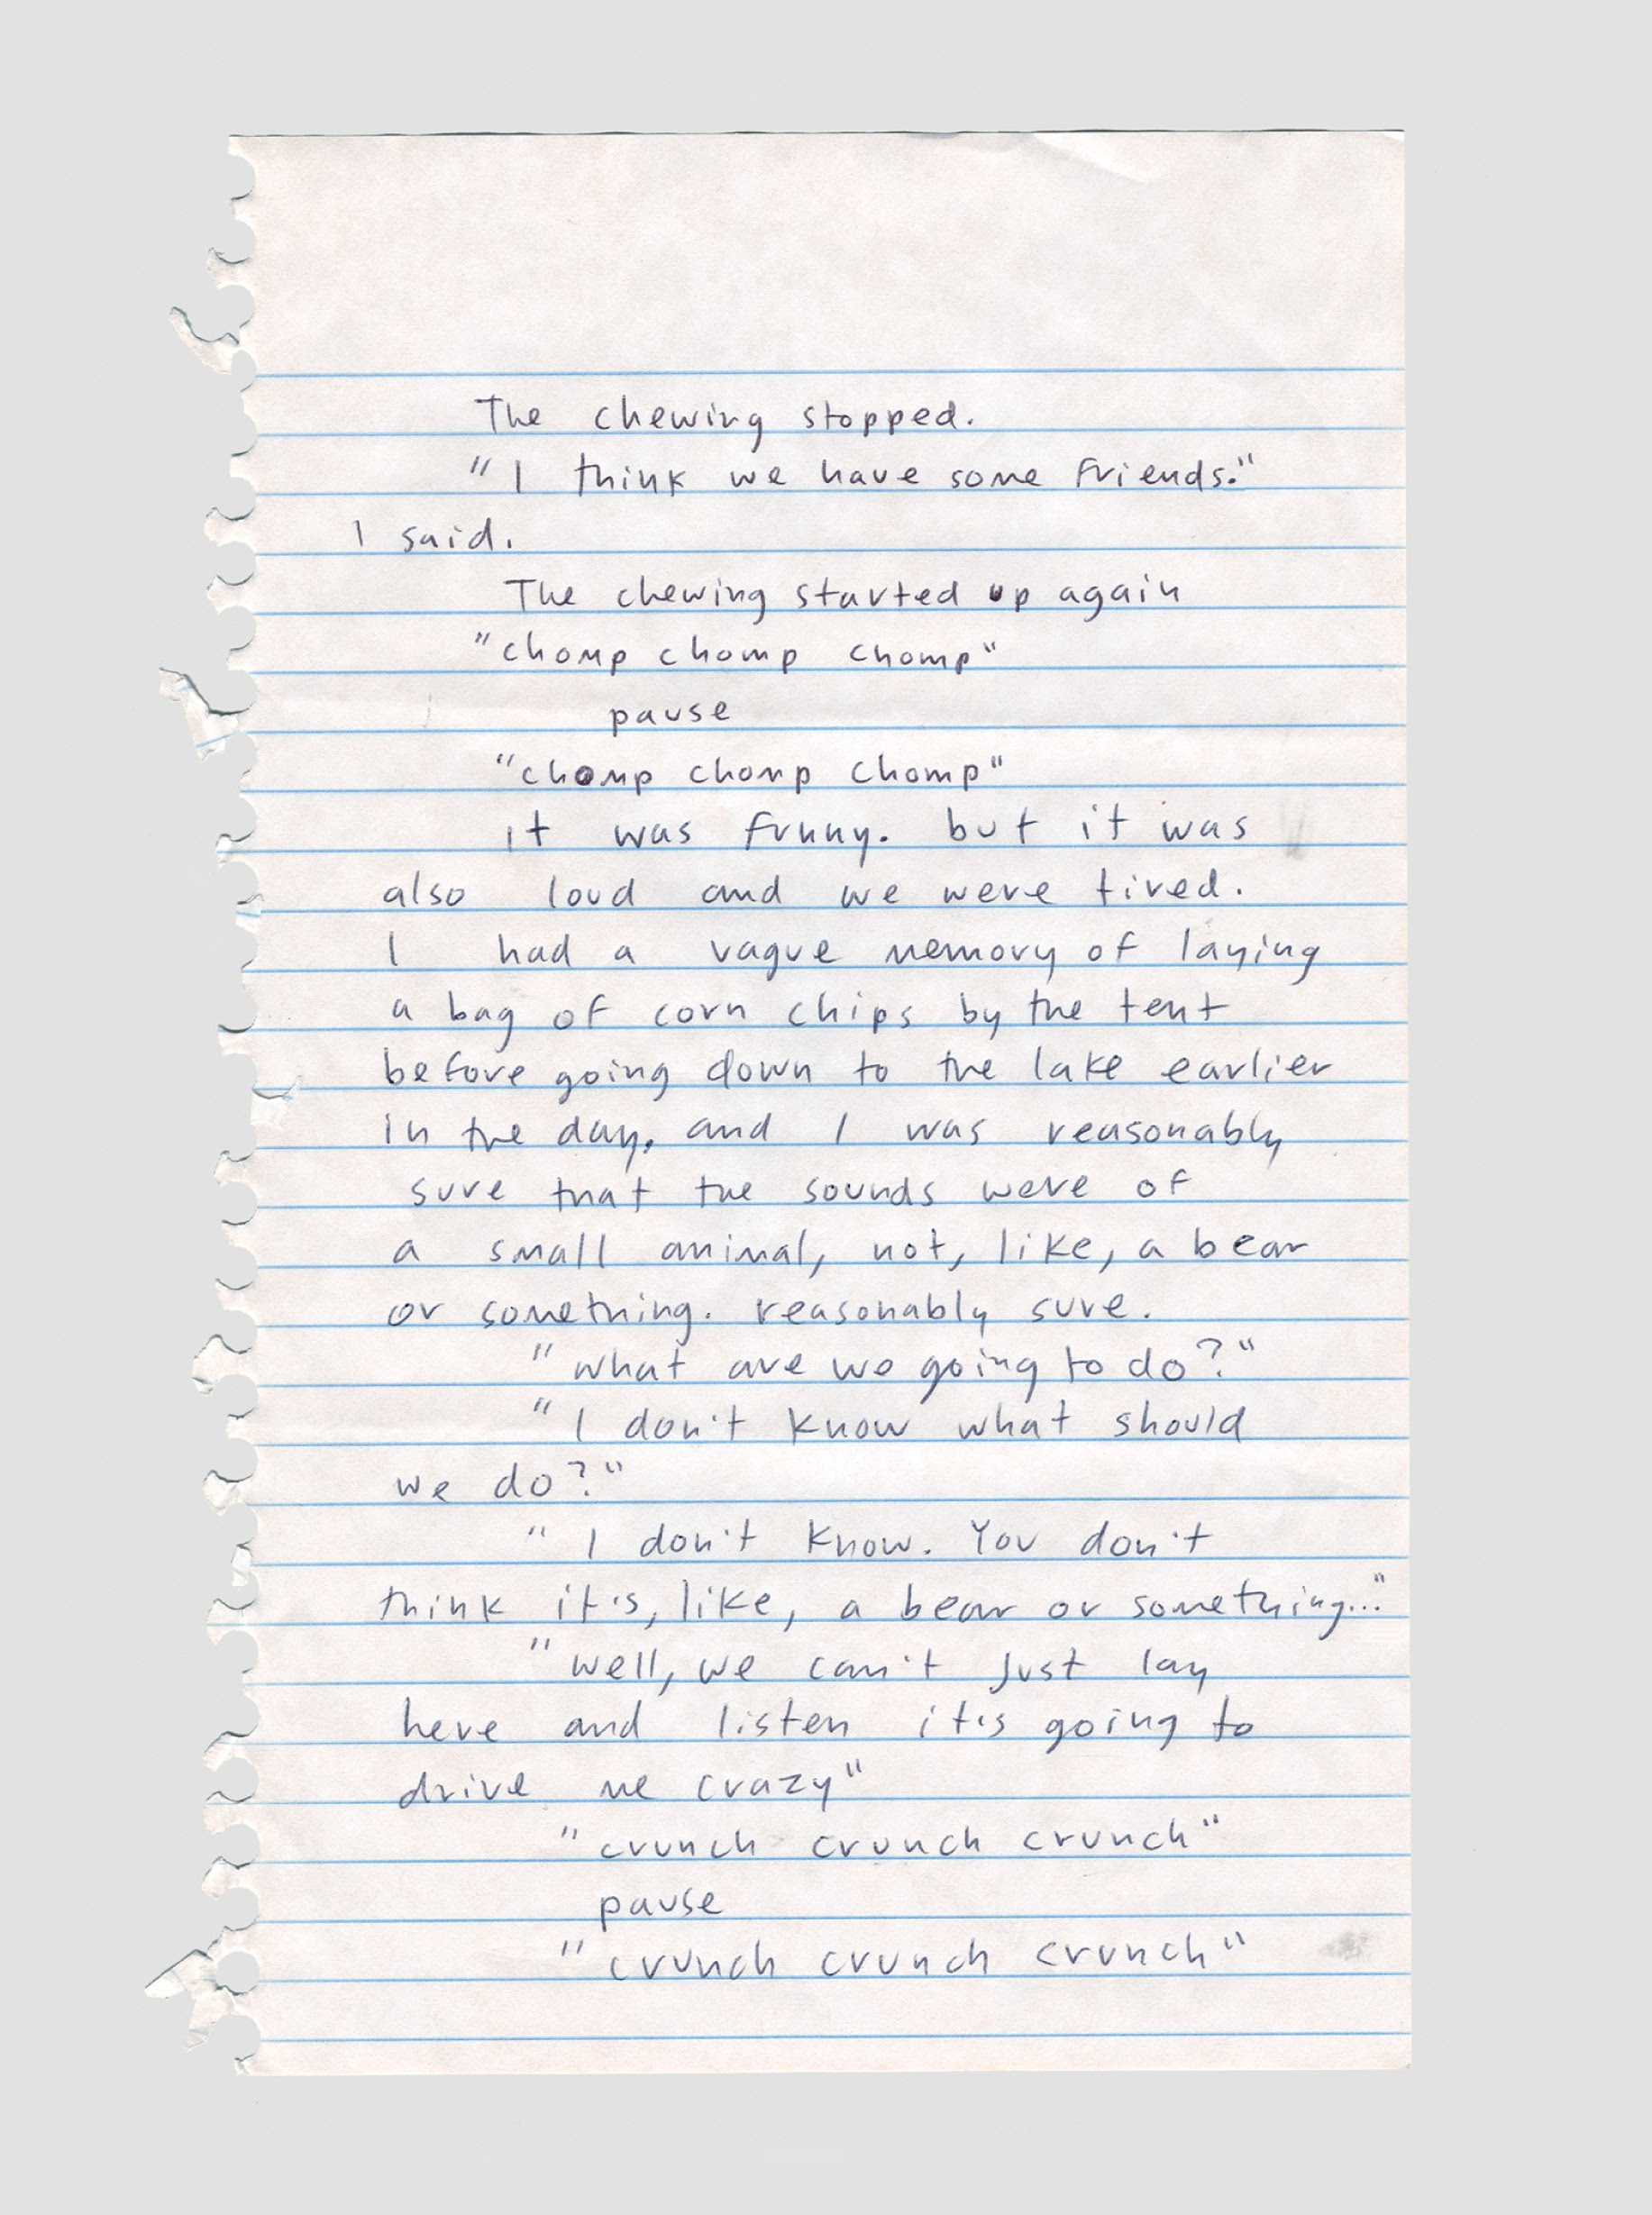 The chewing stopped.
"I think we have some friends."
I said.
The chewing started up again
"chomp chomp chomp"
pause
"chomp chomp chomp"
it was funny. but it was
also loud and we were tired.
I had a vague memory of laying
a bag of corn chips by the tent
before going down to the lake earlier
in the day, and I was reasonably
sure that the sounds were of
a small animal, not, like, a bear
or something. reasonably sure.
"what are we going to do?"
"I don't know what should
we do?"
"I don't know. You don't
think it's, like, a bear or something..."
"well, we can't just lay
here and listen it's going to
drive me crazy"
"crunch crunch crunch"
pause
"crunch crunch crunch"